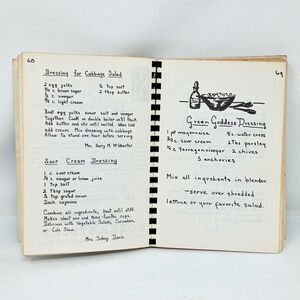 68
Dressing for Cabbage Salad
2 egg yolks ½ tsp salt
¾ c. brown sugar 2 tbsp butter
½ c. vinegar
¾ c. light cream
Beat egg yolks sugar salt and vinegar
together. Cook on double boiler until thick.
Add butter and stir until melted. When cold
add cream. Mix dressing with cabbage.
Allow to stand one hour before serving.
Mrs. Harry M. McWhorter
Sour Cream Dressing
1 c. sour cream
¼ c. vinegar or lemon juice
1 tsp salt
2 tbsp sugar
2 tsp grated onion
Dash cayenne
Combine all ingredients; beat until stiff.
Makes about one and three-fourths cups.
Delicious with Vegetable Salads, Cucumbers,
or Cole Slaw.
Mrs. Sidney
69
Green Goddess Dressing
1 pt mayonnaise ½ c. water cress
¾ c. sour cream 2 Tbs parsley
¼ c. tarragon vinegar 2 chives
5 anchovies
Mix all ingredients in blender.
-serve over shredded
lettuce or your favorite salad.